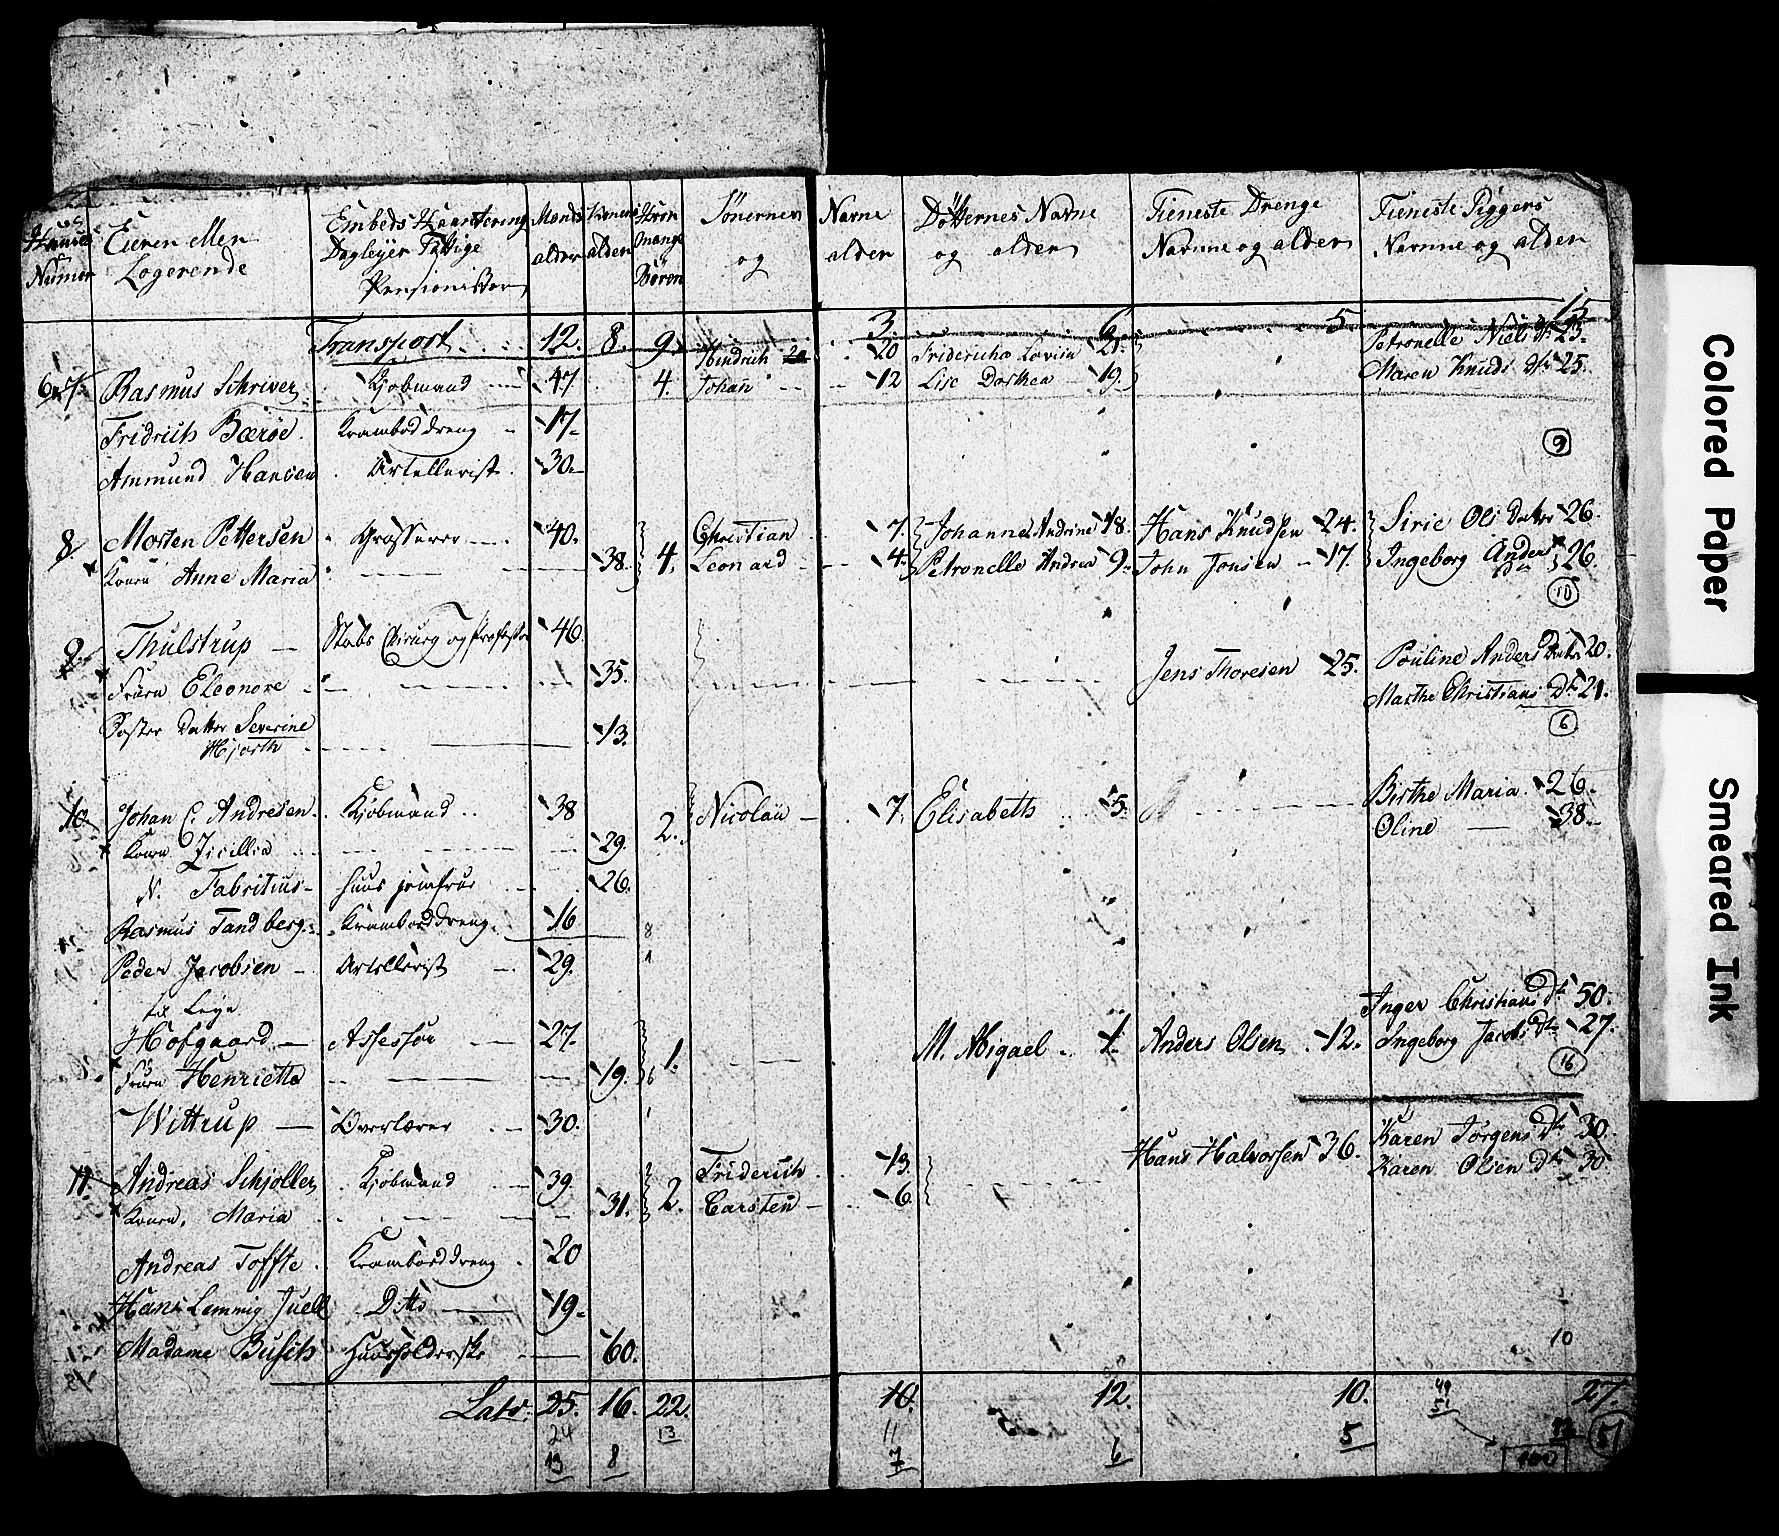 Huuses Numer | Eieren Men Logerende | Embeds Haantering Dagleyer Fattige Pensionister | Mands alder | Konens alden | Hvor Mange Bören | Sönernes og | Navne alder | Dötternes Navne og alder | Tieneste Drenge Navnne og alder | Tieneste Piggers Navnne og alder
Transport | 12. | 8. | 9. | 3. | 6. | 5. | 15
Hindrich 20 | 20 | Fridericha Lovisa 21. | Petronelle Niels Dr 23.
6 & 7 | Rasmus Schriver | Kjobmand | 47 | 4. | Johan | 12 | Lise Dorthea 19. | Maren Knuds Dr 25.
Fridrich Bærøe | Krambod dreng | 17
9
Ammund Hansen | Artellerist | 30
8 | Morten Pettersen | Grosserer | 40. | Christian | 7. | Johanne Andrine 18. | Hans Knudsen 24. | Sirie Ols Datter 26.
Konen Anne Maria | 38. | 4. | Leonard | 4. | Petronelle Andrea 9. | John Jonsen 17. | Ingeborg Anders Dr 26.
10
9. | Thulstrup | Stabs Chirurg og Professor | 46
Fruen Eleonore | 35. | Jens Thoresen 25. | Pouline Anders Datter 20.
Marthe Christians Dr 21.
Foster Datter Severine Hjorth | 13.
6
10 | Johan C. Andresen | Kjobmand | 38 | 2. | Nicolau | 7. | Elisabeth 5. | Birthe Maria 26.
Konen Zicillia | 29. | Oline 38.
N. Fabritius | Huus jomfrue | 26.
Rasmus Tandberg | Krambod dreng | 16 | 8
Peder Jacobsen | Artellerist | 29. | 1
til Leye | Inger Christians Dr 50.
Hofgaard | Assessor | 27. | 1. | M. Abigael 1. | Anders Olsen 12. | Ingeborg Jacobs Dr 27.
Fruen Henrietta | 19. | 6 | 16
Wittrup | Overlærer | 30. | Karen Jörgens Dr 30.
Hans Halvorsen 36.
11 | Andreas Schjøller | Kjobmand | 39. | 2. | Friderich | 13. | Karen Olsen Dr 30
Konen Maria | 31. | Carsten | 6.
Andreas Toffte | Krambod dreng | 20
Hans Lemmig Juell | Ditto | 19.
Madame Busch | Huusholderske | 60. | 10
Lats | 25. | 16. | 22. | 10. | 12. | 10. | 49 51 | 27.
24 | 13 | 11 | 5 | 51
13 | 8 | 7 | 6 | 100
Colored Paper
Smeared Ink